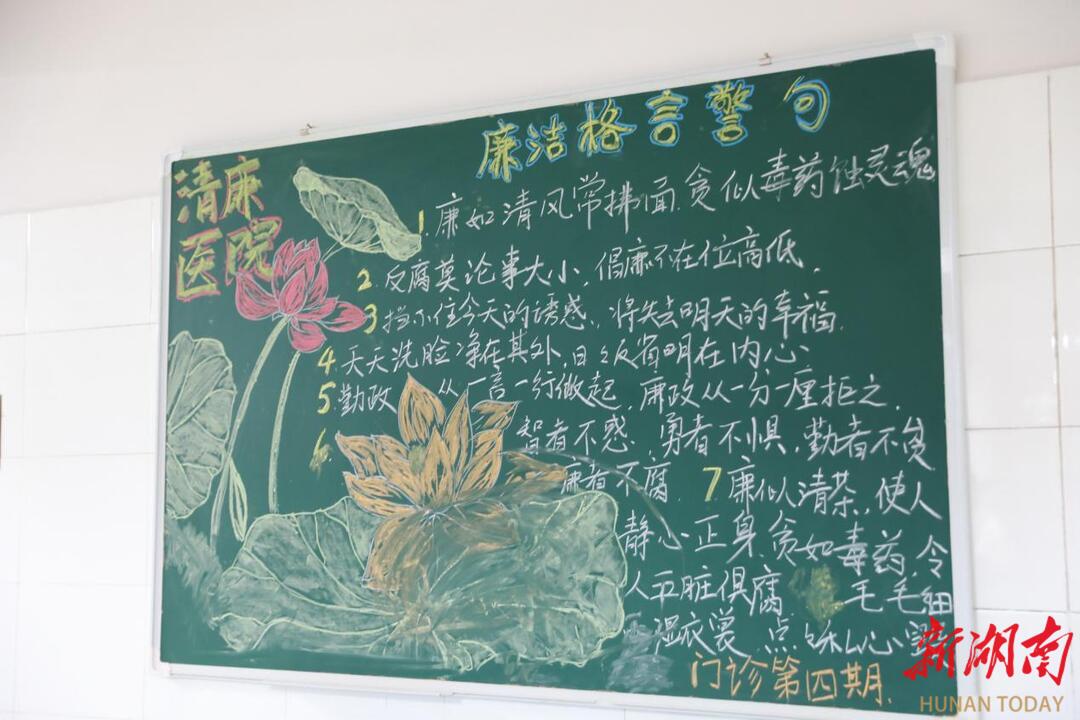 廉洁格言警句
清廉
医院
1. 廉如清风常拂面.贪似毒药蚀灵魂
2. 反腐莫论事大小,倡廉不在位高低.
3 挡不住今天的诱惑,将失去明天的幸福.
4. 天天洗脸净在其外,日々反省明在内心
5. 勤政 从一言一行做起,廉政从一分一厘拒之.
6. 智者不惑.勇者不惧.勤者不贫
廉者不腐. 7 廉似清茶,使人
静心正身.贪如毒药,令
人五脏俱腐 毛毛细
湿衣裳 点
门诊第四期.
新湖南
HUNAN TODAY